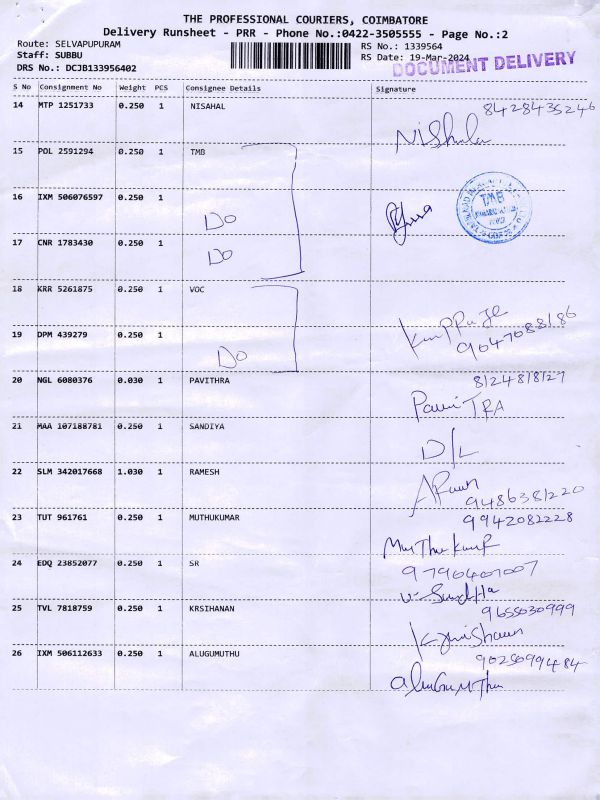 THE PROFESSIONAL COURIERS, COIMBATORE
Delivery Runsheet - PRR - Phone No.:0422-3505555 - Page No.:2
Route: SELVAPUPURAM
RS No.: 1339564
Staff: SUBBU
RS Date: 19-Mar-2024
DRS No.: DCJB133956402
DOCUMENT DELIVERY
S No Consignment No Weight PCS Consignee Details Signature
14 MTP 1251733 0.250 1 NISAHAL
8428435246
Nishala
15 POL 2591294 0.250 1 TMB
16 IXM 506076597 0.250 1
Do
TMB
17 CNR 1783430 0.250 1
Do
18 KRR 5261875 0.250 1 VOC
9047088186
19 DPM 439279 0.250 1
Do
20 NGL 6080376 0.030 1 PAVITHRA
8124818127
PaviTRA
21 MAA 107188781 0.250 1 SANDIYA
D/L
22 SLM 342017668 1.030 1 RAMESH
9486381220
23 TUT 961761 0.250 1 MUTHUKUMAR
9942082228
24 EDQ 23852077 0.250 1 SR
9790407007
25 TVL 7818759 0.250 1 KRSIHANAN
9655030999
26 IXM 506112633 0.250 1 ALUGUMUTHU
9025099484